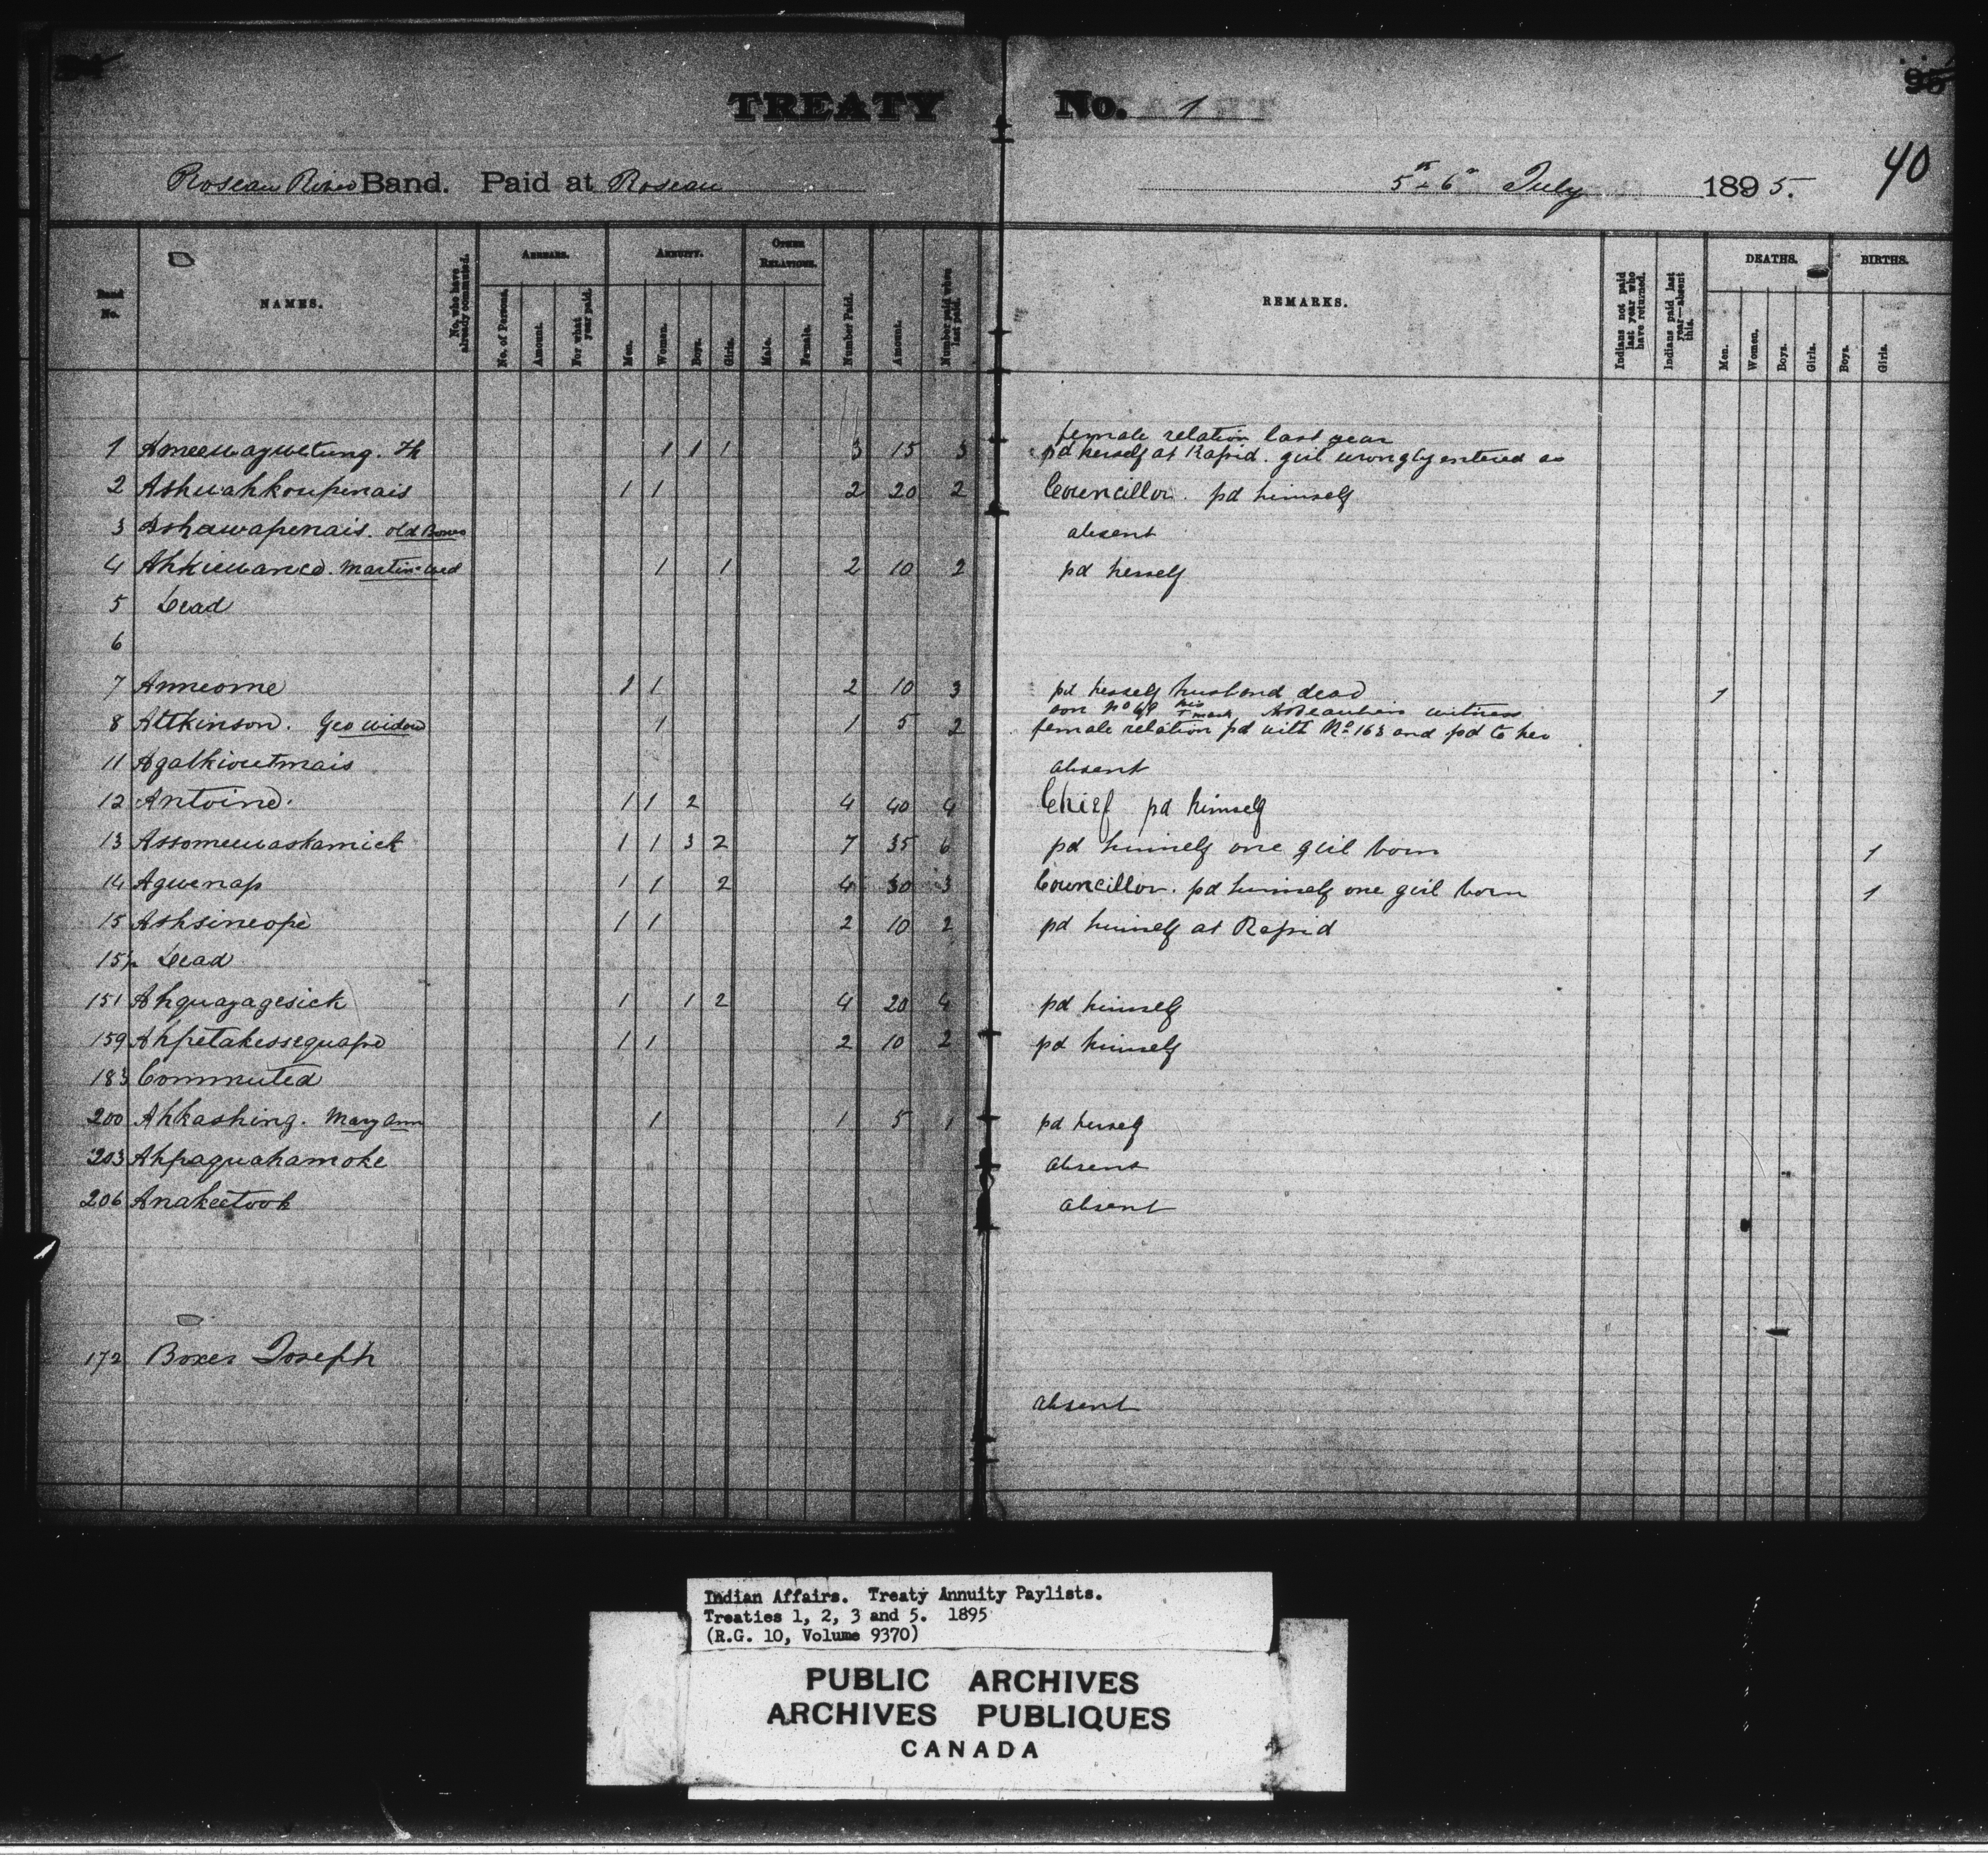 94
TREATY No. 1
95
40
Roseau River Band. Paid at Roseau 5th 6th July 1895.
Band No.
NAMES.
No. who have already commuted.
ARREARS.
No. of Persons.
Amount.
For what year paid.
ANNUITY.
Men.
Women.
Boys.
Girls.
OTHER RELATIONS.
Male.
Female.
Number Paid.
Amount.
Number paid when last paid.
REMARKS.
Indians not paid last year who have returned.
Indians paid last year—absent this.
DEATHS.
Men.
Women.
Boys.
Girls.
BIRTHS.
Boys.
Girls.
female relation last year
1 Ameewaywetung. 1 1 1 3 15 3 pd herself at Rapid. girl wrongly entered as
2 Ashwahkoupenais 1 1 2 20 2 Councillor. pd himself
3 Ashawapenais. old Bones absent
4 Ahkiewance. Martin wid 1 1 2 10 2 pd herself
5 Dead
6
7 Anneome 1 1 2 10 3 pd herself husband dead 1
son No 69 his + mark witness
8 Attkinson. Geo widow 1 1 5 2 female relation pd with No 163 and pd to her
11 Agatkioutmais absent
12 Antoine. 1 1 2 4 40 4 Chief pd himself
13 Assomewaskamick 1 1 3 2 7 35 6 pd himself one girl born 1
14 Agwenap 1 1 2 4 30 3 Councillor. pd himself one girl born 1
15 Ashsineope 1 1 2 10 2 pd himself at Rapid
15½ Dead
151 Ahquayagesick 1 1 2 4 20 4 pd himself
159 Ahpetakessequape 1 1 2 10 2 pd himself
183 Commuted
200 Ahkashing. Mary Ann 1 1 5 1 pd herself
203 Ahpaquahamoke absent
206 Anakeetook absent
172 Boxer Joseph
absent
Indian Affairs. Treaty Annuity Paylists.
Treaties 1, 2, 3 and 5. 1895
(R.G. 10, Volume 9370)
PUBLIC ARCHIVES
ARCHIVES PUBLIQUES
CANADA